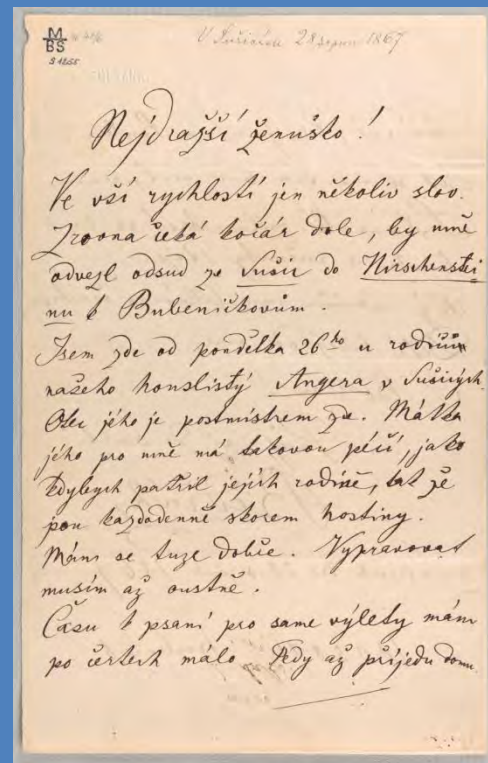 M
BS
S 1255
V Sušicích 28 srpna 1867
Nejdražší ženuško!
Ve vší rychlostí jen několiv slov.
Zrovna čeká kočár dole, by mně
odvezl odsud ze Sušic do Hirschenstei-
nu k Bubeníčkovům.
Jsem zde od pondělka 26ho u rodičům
našeho houslistý Angera v Sušicých.
Otec jého je postmistrem zde. Mátka
jého pro mně má takovou péčí, jako
kdybych patřil jejich rodině, tak že
jsou každodenně skorem hostiny.
Mám se tuze dobře. Vypravovat
musím až oustně.
Času k psaní pro same výlety mám
po čertech málo Tedy až přijedu domu.